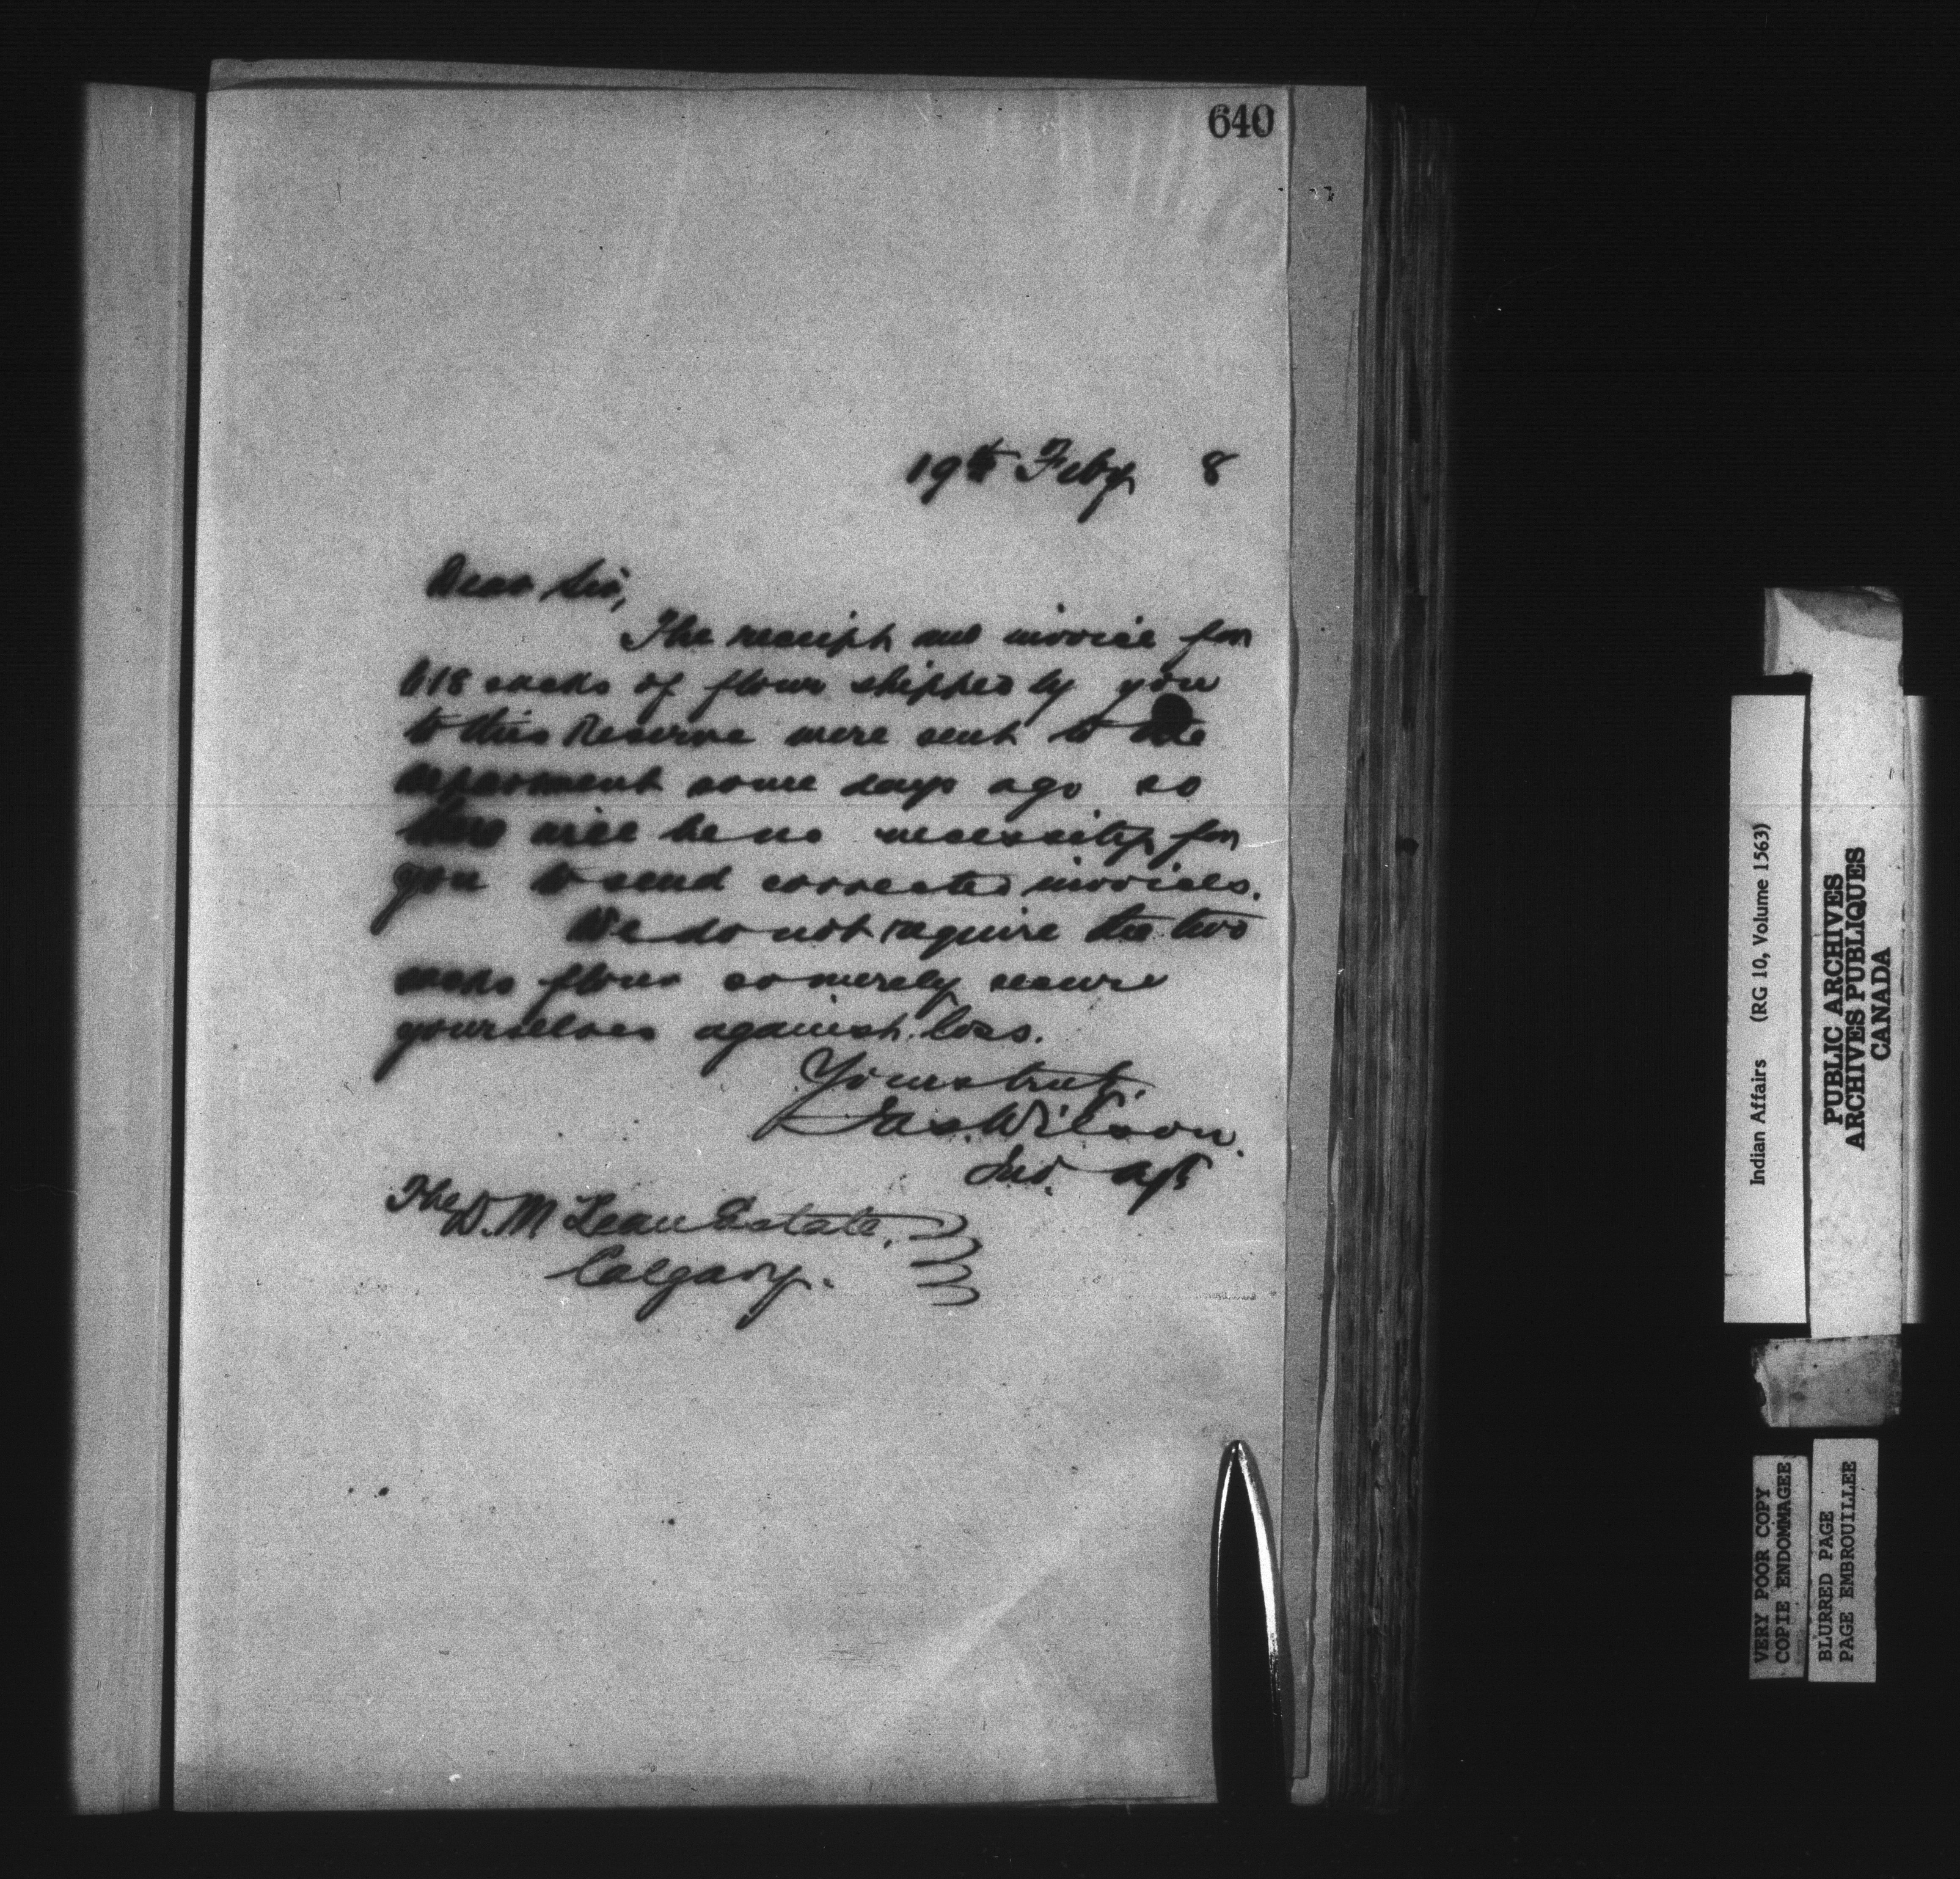 640
19th Feby 8
Dear Sir,
The receipt and invoice for
618 sacks of flour shipped by you
to this Reserve were sent to the
deparment some days ago so
there will be no necessity for
you to send corrected invoices.
We do not require the two
sacks flour so merely secure
yourselves against loss.
Yours truly
Jas. Wilson.
Ind. Agt
The D. M Lean Estate.
Calgary.
Indian Affairs (RG 10, Volume 1563)
PUBLIC ARCHIVES
ARCHIVES PUBLIQUES
CANADA
VERY POOR COPY
COPIE ENDOMMAGEE
BLURRED PAGE
PAGE EMBROUILLEE